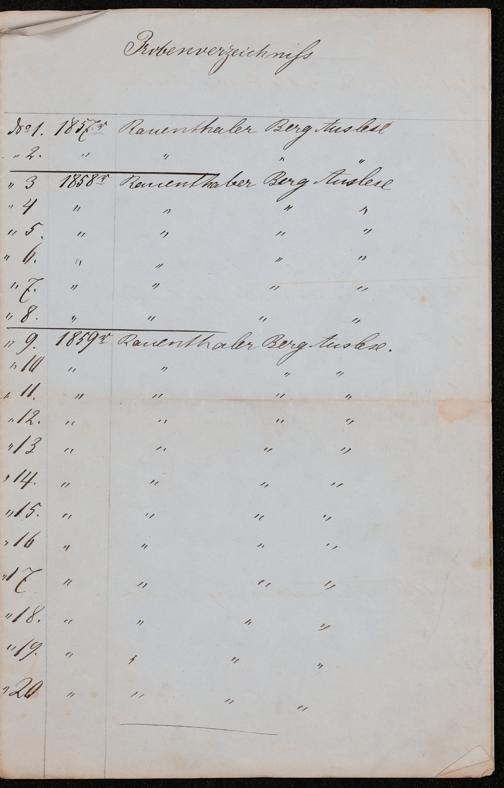 Probenverzeichniss
No 1. 1857r Rauenthaler Berg Auslese
„ 2. „ „ „ „
„ 3 1858r Rauenthaler Berg Auslese
„ 4 „ „ „ „
„ 5. „ „ „ „
„ 6. „ „ „ „
„ 7. „ „ „ „
„ 8. „ „ „ „
„ 9. 1859r Rauenthaler Berg Auslese.
„ 10 „ „ „ „
„ 11. „ „ „ „
„ 12. „ „ „ „
„ 13 „ „ „ „
„ 14. „ „ „ „
„ 15. „ „ „ „
„ 16 „ „ „ „
„ 17 „ „ „ „
„ 18. „ „ „ „
„ 19. „ „ „ „
„ 20 „ „ „ „